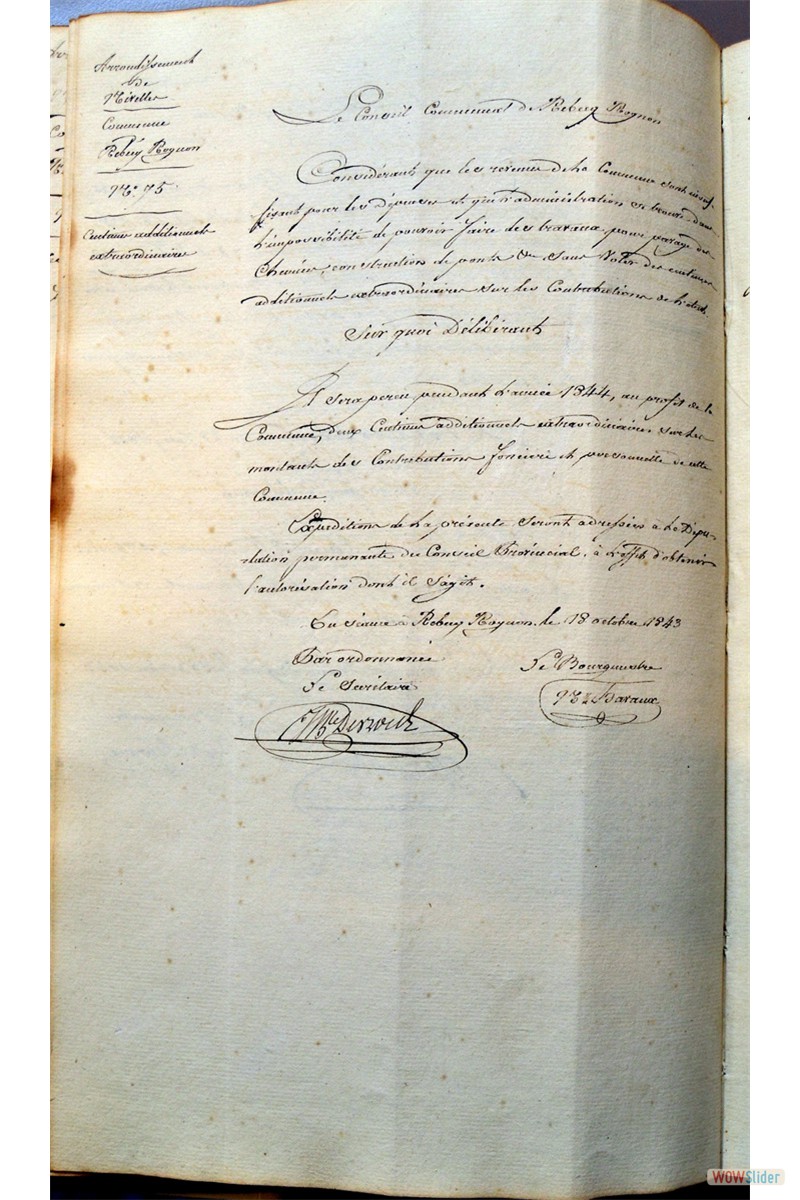 Arrondissement
de
Nivelles
Commune
Rebecq Rognon
N°. 75
Centimes additionnels
extraordinaires
Le Conseil Communal de Rebecq Rognon
Considérant que les revenus de la Commune sont insuf-
fisant pour les dépenses et que l'administration se trouve dans
l'impossibilité de pouvoir faire des travaux pour pavage des
Chemins, construction de ponts &a sans voter des centimes
additionnels extraordinaires sur les Contributions de l'état.
Sur quoi Délibérant
Il sera perçu pendant l'année 1844, au profit de la
Commune, deux Centimes additionnels extraordinaires sur les
montants des Contributions foncière et personnelle de cette
Commune.
Expéditions de la présente seront adressées à la Dépu-
tation permanante du Conseil Provincial, à l'effet d'obtenir
l'autorisation dont il s'agit.
En séance à Rebecq Rognon, le 18 octobre 1843
Par ordonnance
Le Bourgmestre
Le Secrétaire
WOWSlider